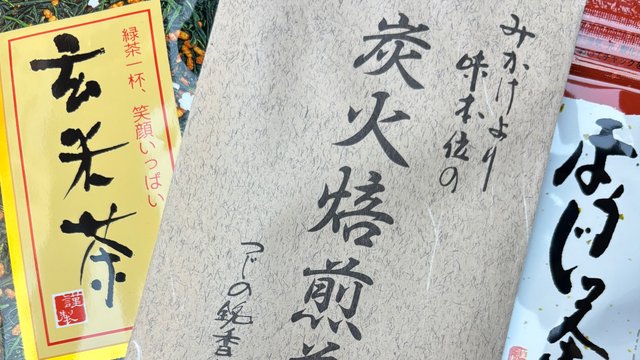 緑茶一杯、笑顔いっぱい
玄米茶
謹製
みかけより
味本位の
炭火焙煎
つじの銘香
ほうじ茶